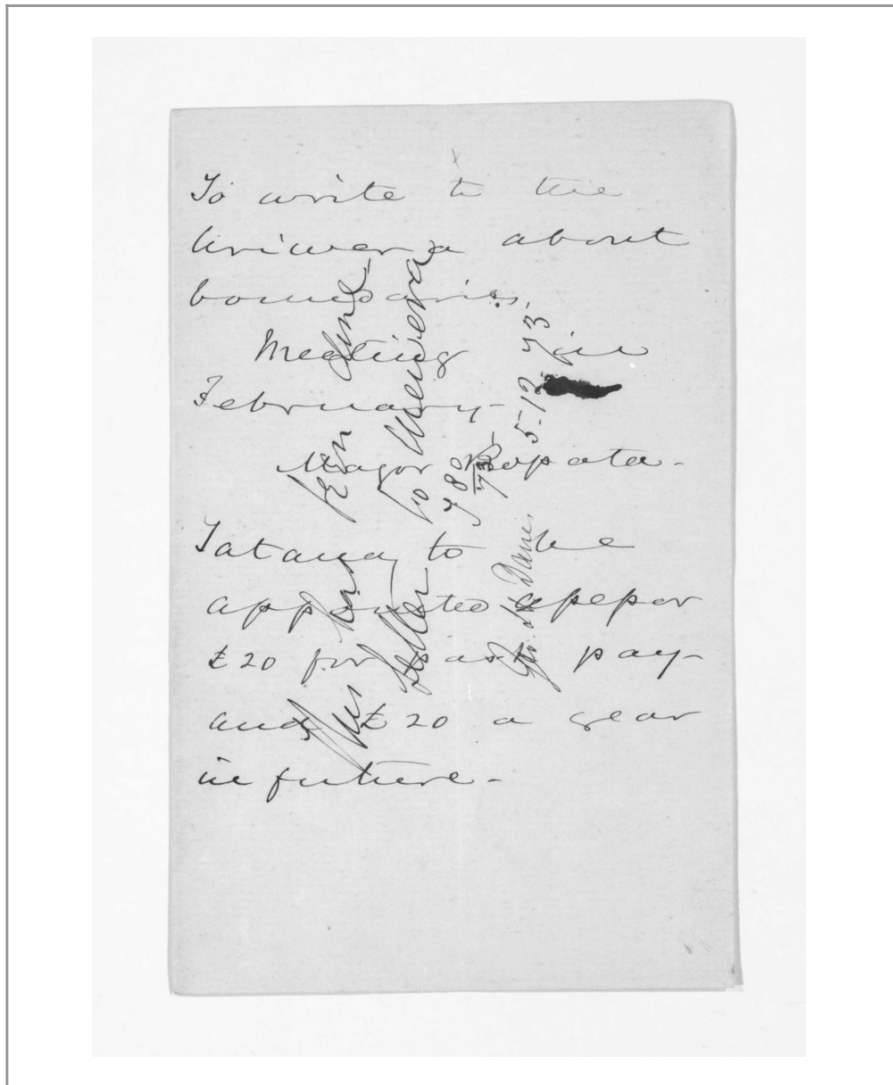 To write to the
Uriwera about
boundaries.
Meeting in
February -
Major Ropata -
Tatana, to be
appointed assessor
£20 for past pay -
and £20 a year
in future -
This has been done
Letter to Urewera
780
73
5.12.73